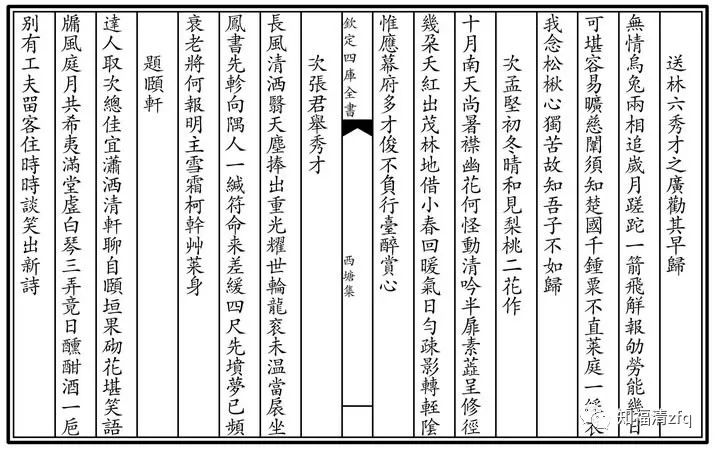 送林六秀才之廣勸其早歸
無情烏兔兩相追歲月蹉跎一箭飛觧報劬勞能幾日
可堪容易曠慈闈須知楚國千鍾粟不直菜庭一綵衣
我念松楸心獨苦故知吾子不如歸
次孟堅初冬晴和見梨桃二花作
十月南天尚暑襟幽花何怪動清吟半扉素蘂呈修徑
幾朶夭紅出茂林地借小春回暖氣日勻疎影轉輕陰
惟應幕府多才俊不負行臺醉賞心
欽定四庫全書
西塘集
次張君舉秀才
長風清洒翳天塵捧出重光耀世輪龍衮未温當扆坐
鳳書先軫向隅人一緘符命来差緩四尺先墳夢已頻
衰老將何報明主雪霜柯幹艸菜身
題頤軒
達人取次總佳宜瀟洒清軒聊自頤垣果砌花堪笑語
牖風庭月共希夷滿堂虛白琴三弄竟日醺酣酒一巵
别有工夫留客住時時談笑出新詩
知福清zfq